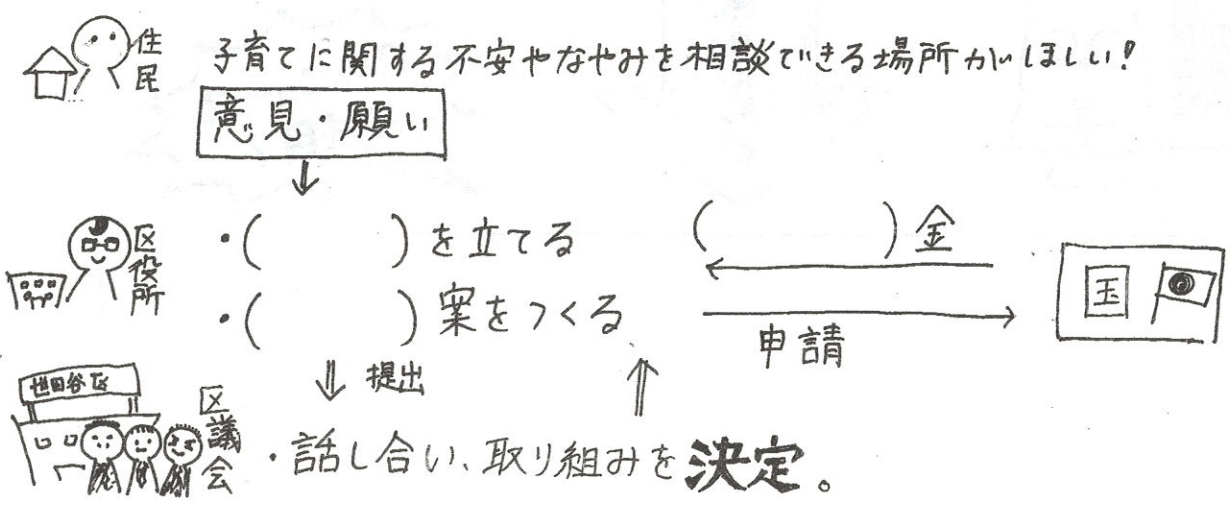 住民
子育てに関する不安やなやみを相談できる場所がほしい!
意見・願い
区役所
・(　　　)を立てる
・(　　　)案をつくる
(　　　)金
申請
国
提出
世田谷区
区議会
・話し合い、取り組みを決定。